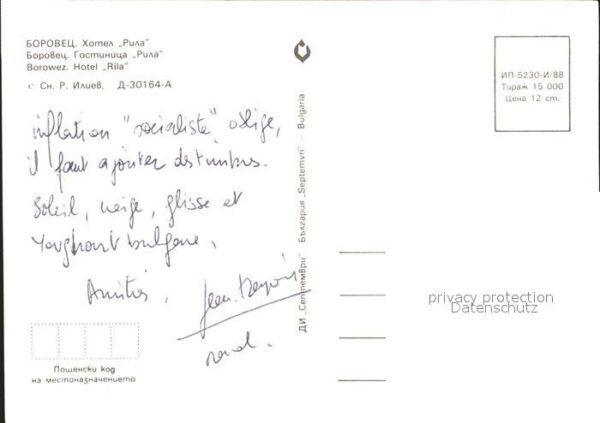 БОРОВЕЦ. Хотел „Рила"
Боровец. Гостиница „Рила"
Borowez. Hotel „Rila"
с Сн. Р. Илиев, Д-30164-А
inflation "socialiste" oblige,
il faut ajouter des timbres.
Soleil, neige, glisse et
Yoghourt bulgare,
Amitiés.
Jean-
ДИ „Септември" България „Septemvri" Bulgaria
ИП-5230-И/88
Тираж 15 000
Цена 12 ст.
privacy protection
Datenschutz
Пощенски код
на местоназначението